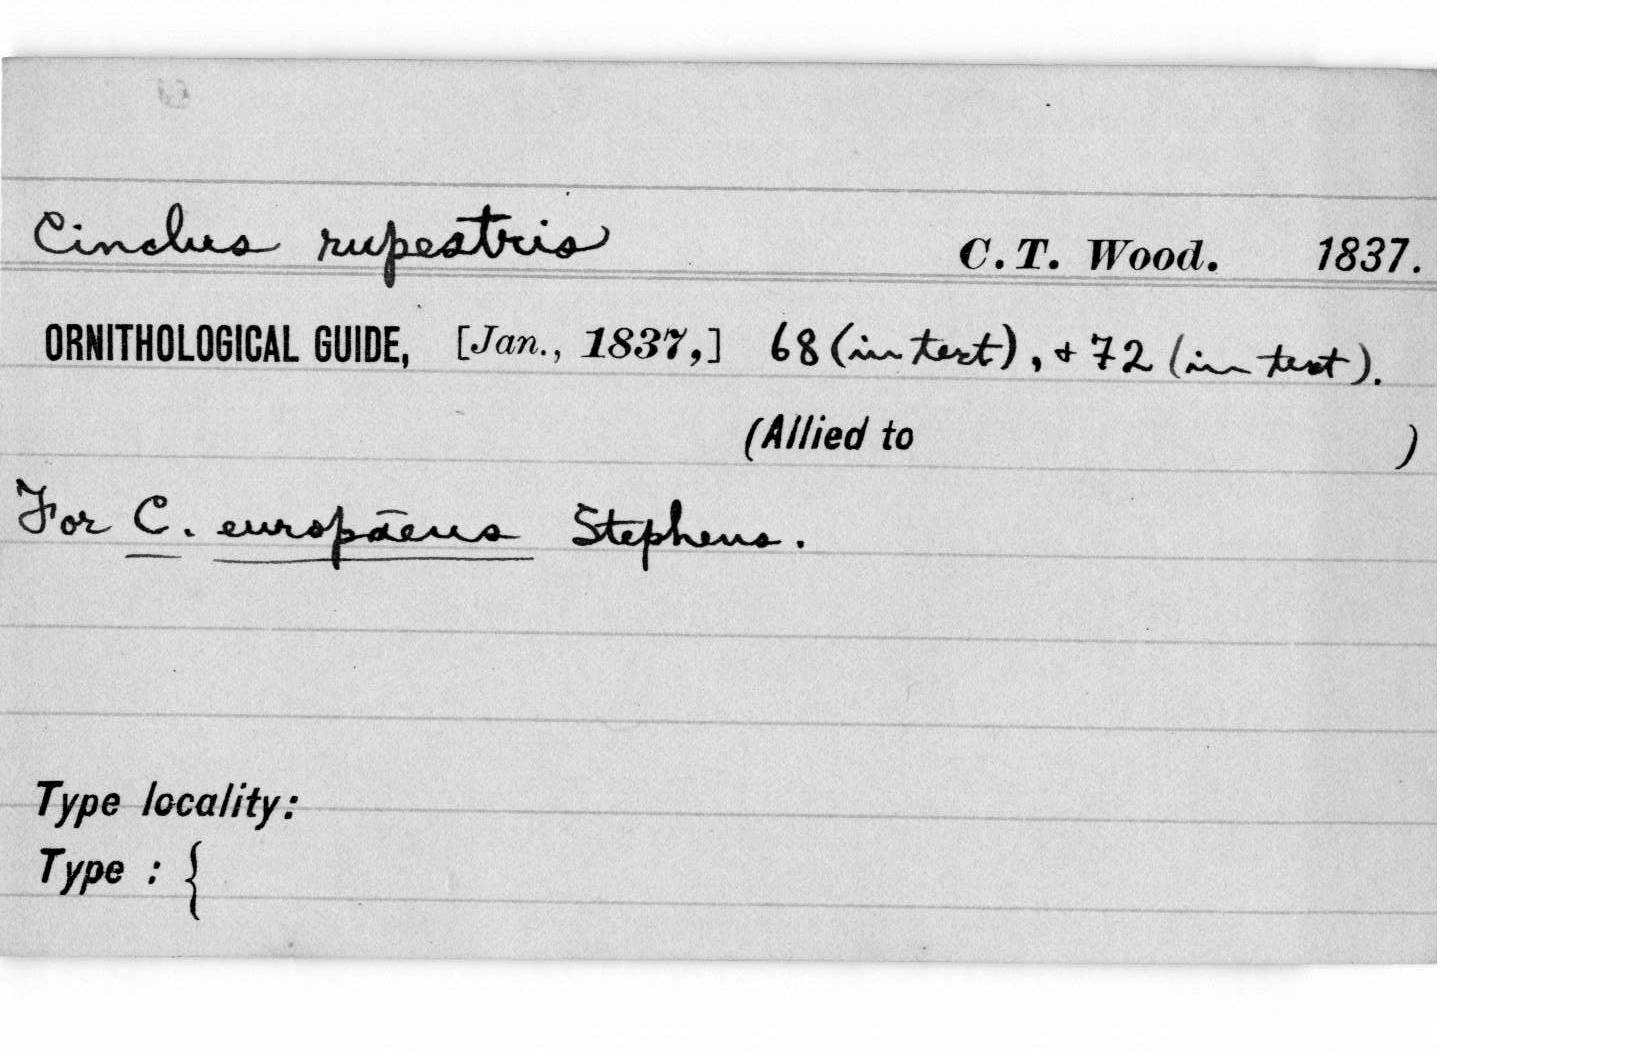 Cinclus rupestris C. T. Wood. 1837.
ORNITHOLOGICAL GUIDE, [Jan., 1837,] 68 (in text), + 72 (in text).
(Allied to )
For C. europāeus Stephens.
Type locality:
Type : {